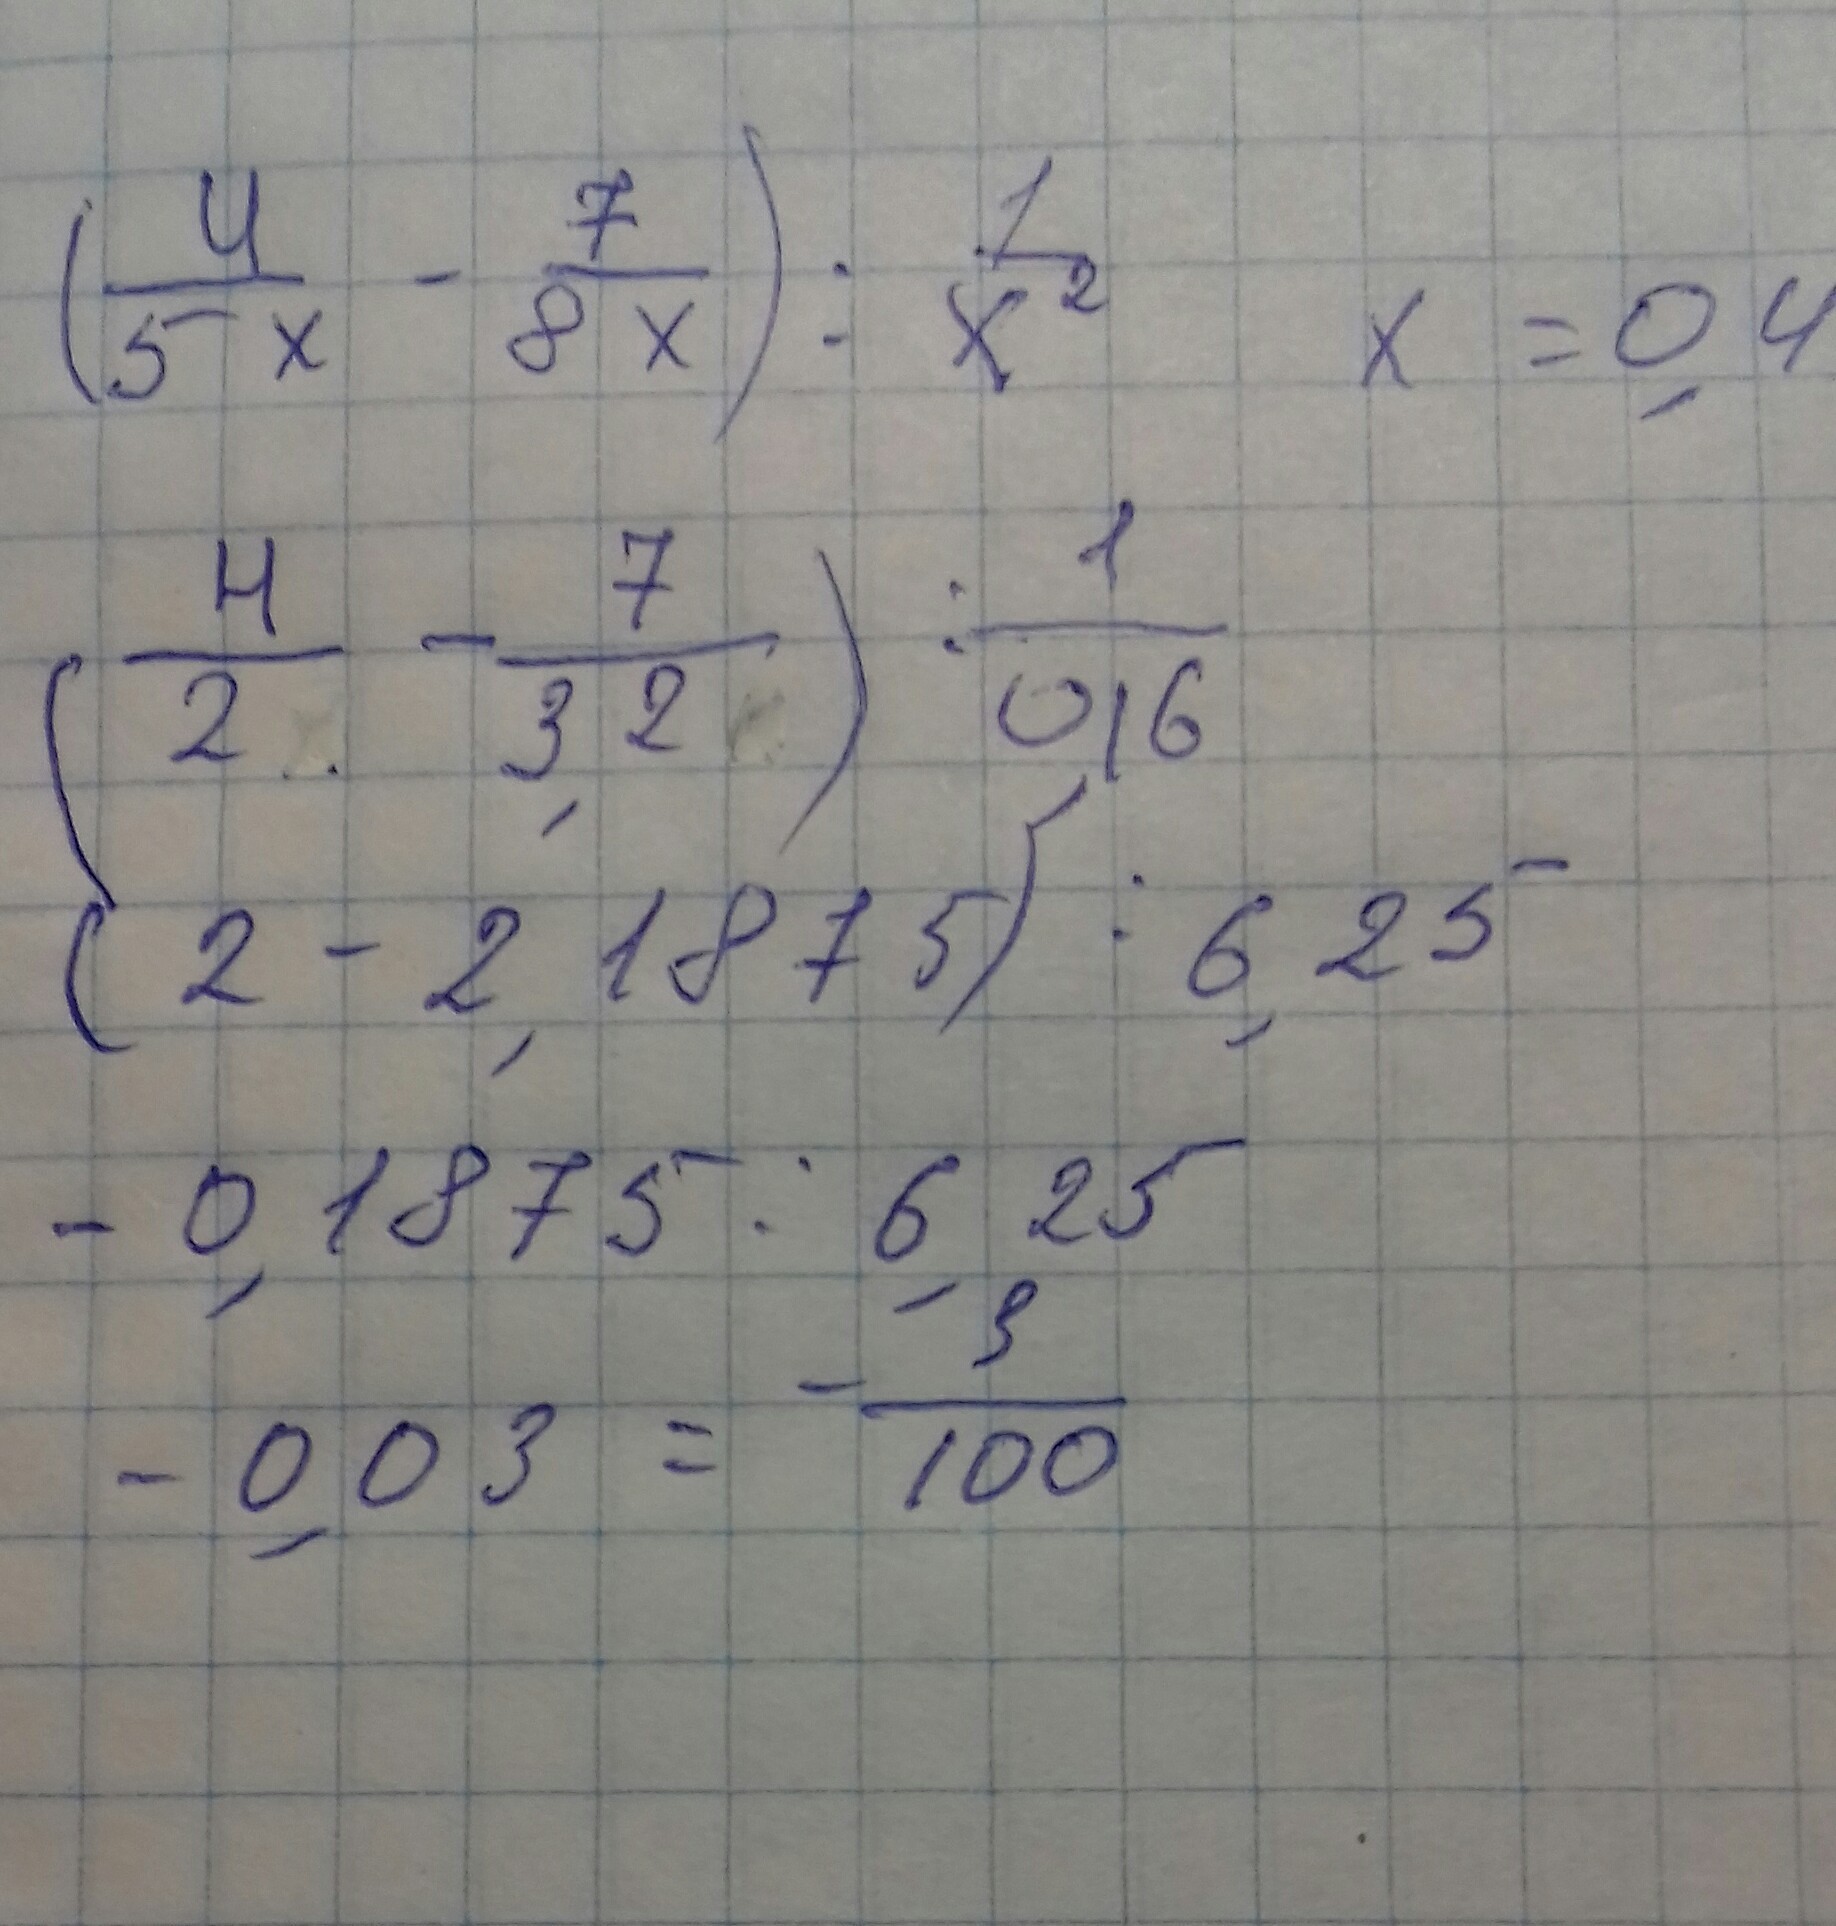 (4/5x - 7/8x) : 1/x² x = 0,4
(4/2 - 7/3,2) : 1/0,16
(2 - 2,1875) : 6,25
- 0,1875 : 6,25
- 0,03 = - 3/100